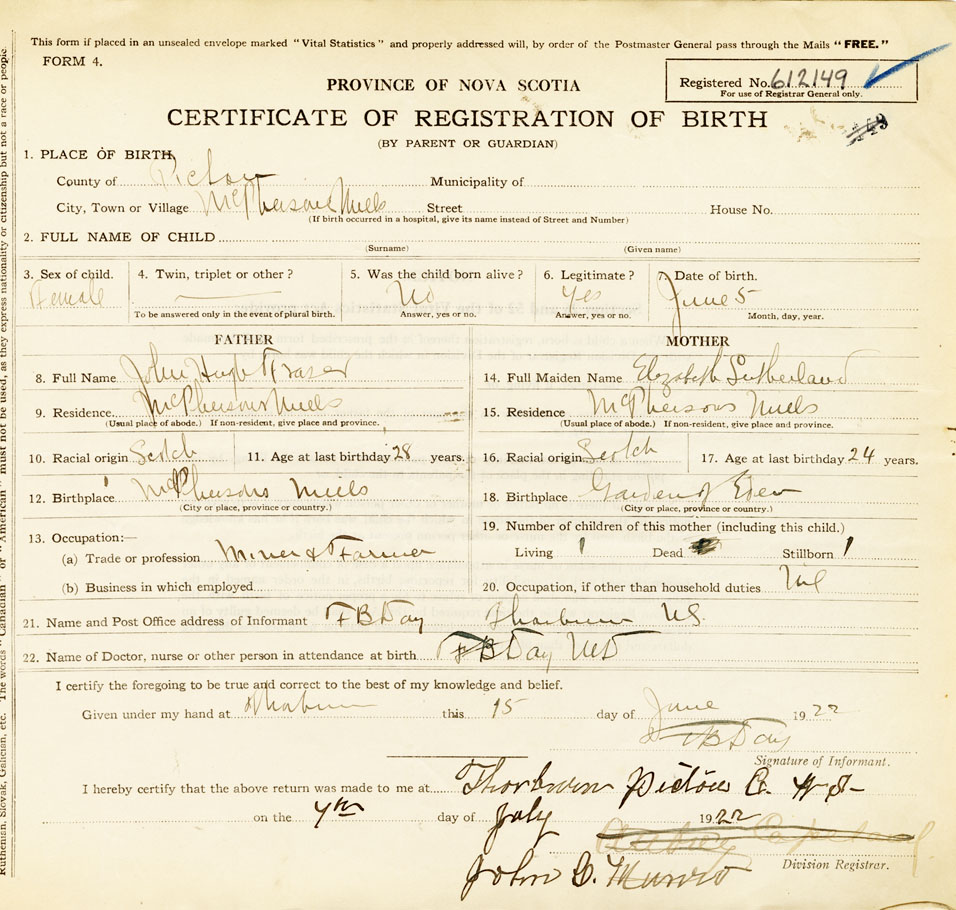 This form if placed in an unsealed envelope marked "Vital Statistics" and properly addressed will, by order of the Postmaster General pass through the Mails "FREE."
FORM 4.
PROVINCE OF NOVA SCOTIA
Registered No. 612149
For use of Registrar General only.
CERTIFICATE OF REGISTRATION OF BIRTH
(BY PARENT OR GUARDIAN)
1. PLACE OF BIRTH
County of Pictou Municipality of
City, Town or Village McPhersons Mills Street House No.
(If birth occurred in a hospital, give its name instead of Street and Number)
2. FULL NAME OF CHILD
(Surname) (Given name)
3. Sex of child. 4. Twin, triplet or other? 5. Was the child born alive? 6. Legitimate? 7. Date of birth.
Female No Yes June 5
To be answered only in the event of plural birth. Answer, yes or no. Answer, yes or no. Month, day, year.
FATHER MOTHER
8. Full Name John Hugh Fraser 14. Full Maiden Name Elizabeth Sutherland
9. Residence. McPhersons Mills 15. Residence McPhersons Mills
(Usual place of abode.) If non-resident, give place and province. (Usual place of abode.) If non-resident, give place and province.
10. Racial origin Scotch 11. Age at last birthday 28 years. 16. Racial origin Scotch 17. Age at last birthday 24 years.
12. Birthplace McPhersons Mills 18. Birthplace Garden of Eden
(City or place, province or country.) (City or place, province or country.)
13. Occupation:— 19. Number of children of this mother (including this child.)
(a) Trade or profession Miner & Farmer Living 1 Dead Stillborn 1
(b) Business in which employed 20. Occupation, if other than household duties Nil
21. Name and Post Office address of Informant F B Day Thorburn N.S.
22. Name of Doctor, nurse or other person in attendance at birth F B Day MD
I certify the foregoing to be true and correct to the best of my knowledge and belief.
Given under my hand at Thorburn this 15 day of June 1922
F B Day
Signature of Informant.
I hereby certify that the above return was made to me at Thorburn Pictou Co. N.S.
on the 4th day of July 1922
John D. Munro
Division Registrar.
Ruthenian, Slovak, Galician, etc. The words "Canadian" or "American" must not be used, as they express nationality or citizenship but not a race or people.